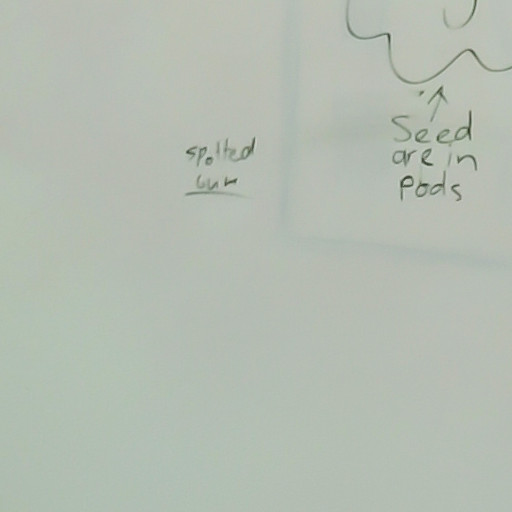 spotted
Gum
Seed
are in
Pods